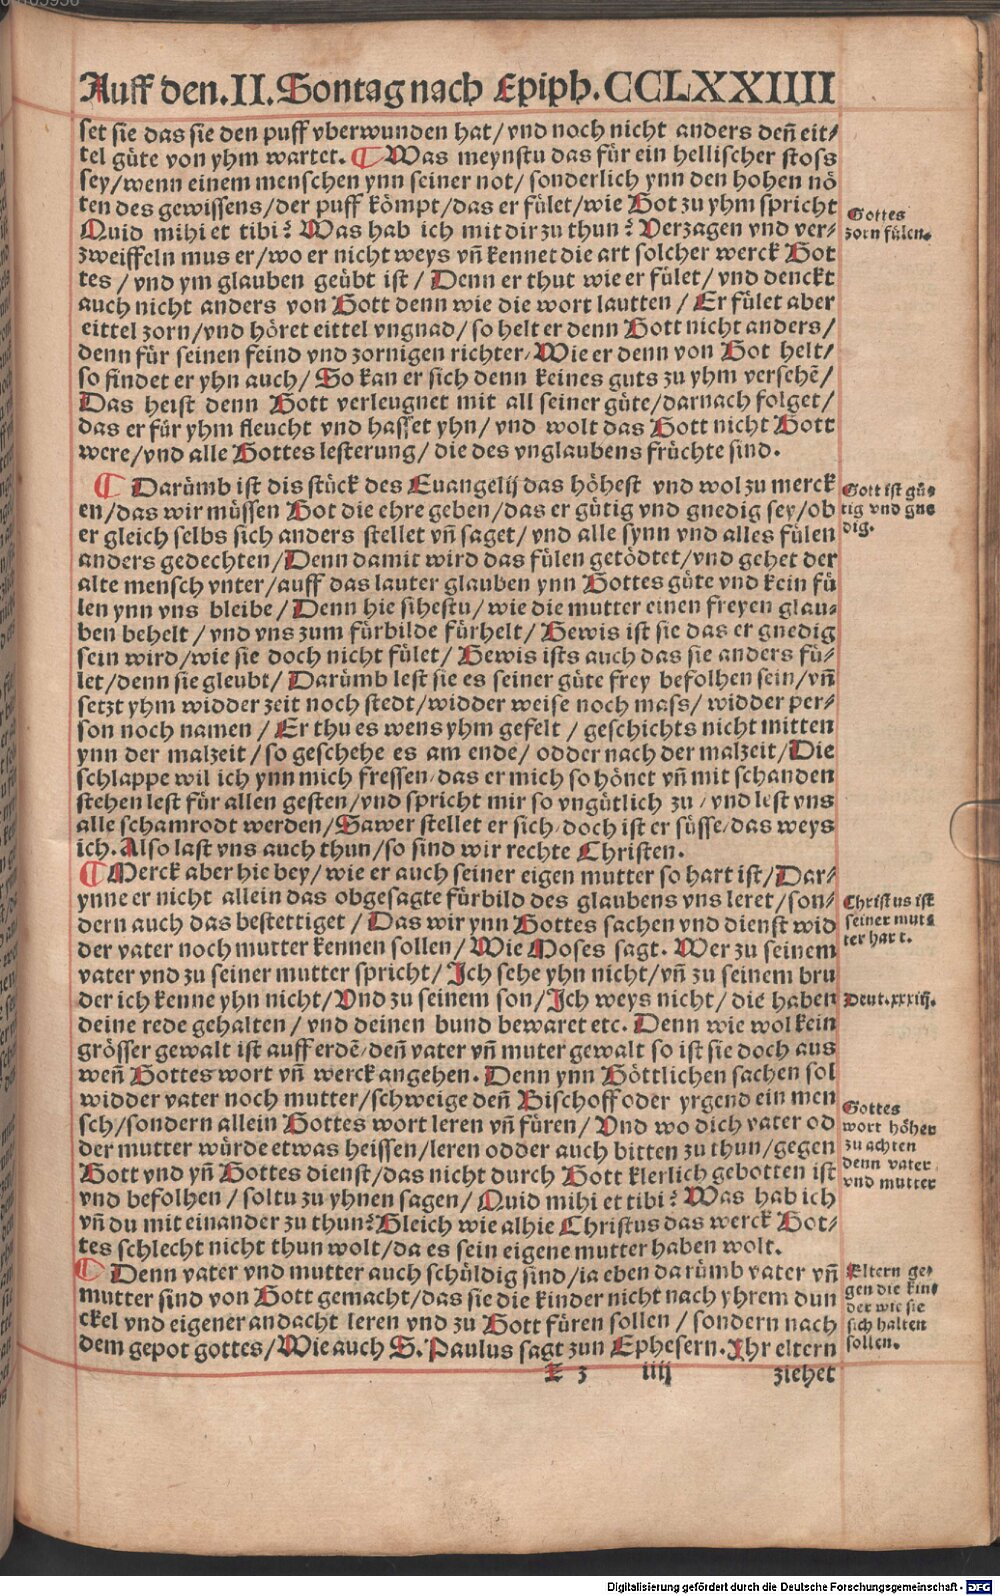 Auff den.II.Sontag nach Epiph.CCLXXIIII
set sie das sie den puff vberwunden hat/vnd noch nicht anders deñ eit⸗
tel güte von yhm wartet. ¶ Was meynstu das für ein hellischer stoss
sey/wenn einem menschen ynn seiner not/sonderlich ynn den hohen nö
ten des gewissens/der puff kömpt/das er fület/wie Got zu yhm spricht
Quid mihi et tibi? Was hab ich mit dir zu thun? Verzagen vnd ver⸗
zweiffeln mus er/wo er nicht weys vñ kennet die art solcher werck Got
tes/vnd ym glauben geübt ist/Denn er thut wie er fület/vnd denckt
auch nicht anders von Gott denn wie die wort lautten/Er fület aber
eittel zorn/vnd höret eittel vngnad/so helt er denn Gott nicht anders/
denn für seinen feind vnd zornigen richter/Wie er denn von Got helt/
so findet er yhn auch/So kan er sich denn keines guts zu yhm versehē/
Das heist denn Gott verleugnet mit all seiner güte/darnach folget/
das er für yhm fleucht vnd hasset yhn/vnd wolt das Gott nicht Gott
were/vnd alle Gottes lesterung/die des vnglaubens früchte sind.
¶ Darümb ist dis stück des Euangelij das höhest vnd wol zu merck
en/das wir müssen Got die ehre geben/das er gütig vnd gnedig sey/ob
er gleich selbs sich anders stellet vñ saget/vnd alle synn vnd alles fülen
anders gedechten/Denn damit wird das fülen getödtet/vnd gehet der
alte mensch vnter/auff das lauter glauben ynn Gottes güte vnd kein fü
len ynn vns bleibe/Denn hie sihestu/wie die mutter einen freyen glau⸗
ben behelt/vnd vns zum fürbilde fürhelt/Gewis ist sie das er gnedig
sein wird/wie sie doch nicht fület/Gewis ists auch das sie anders fü⸗
let/denn sie gleubt/Darümb lest sie es seiner güte frey befolhen sein/vñ
setzt yhm widder zeit noch stedt/widder weise noch mass/widder per⸗
son noch namen/Er thu es wens yhm gefelt/geschichts nicht mitten
ynn der malzeit/so geschehe es am ende/odder nach der malzeit/Die
schlappe wil ich ynn mich fressen/das er mich so hönet vñ mit schanden
stehen lest für allen gesten/vnd spricht mir so vngütlich zu/vnd lest vns
alle schamrodt werden/Sawer stellet er sich/doch ist er süsse/das weys
ich.Also last vns auch thun/so sind wir rechte Christen.
¶ Merck aber hie bey/wie er auch seiner eigen mutter so hart ist/Dar⸗
ynne er nicht allein das obgesagte fürbild des glaubens vns leret/son⸗
dern auch das bestettiget/Das wir ynn Gottes sachen vnd dienst wid
der vater noch mutter kennen sollen/Wie Moses sagt. Wer zu seinem
vater vnd zu seiner mutter spricht/Ich sehe yhn nicht/vñ zu seinem bru
der ich kenne yhn nicht/Vnd zu seinem son/Ich weys nicht/die haben
deine rede gehalten/vnd deinen bund bewaret etc. Denn wie wol kein
grösser gewalt ist auff erdē/deñ vater vñ muter gewalt so ist sie doch aus
weñ Gottes wort vñ werck angehen. Denn ynn Göttlichen sachen sol
widder vater noch mutter/schweige deñ Bischoff oder yrgend ein men
sch/sondern allein Gottes wort leren vñ füren/Vnd wo dich vater od
der mutter würde etwas heissen/leren odder auch bitten zu thun/gegen
Gott vnd yñ Gottes dienst/das nicht durch Gott klerlich gebotten ist
vnd befolhen/soltu zu yhnen sagen/Quid mihi et tibi? Was hab ich
vñ du mit einander zu thun? Gleich wie alhie Christus das werck Got⸗
tes schlecht nicht thun wolt/da es sein eigene mutter haben wolt.
¶ Denn vater vnd mutter auch schüldig sind/ia eben darümb vater vñ
mutter sind von Gott gemacht/das sie die kinder nicht nach yhrem dun
ckel vnd eigener andacht leren vnd zu Gott füren sollen/sondern nach
dem gepot gottes/Wie auch S.Paulus sagt zun Ephesern.Ihr eltern
3 iiij ziehet
Gottes
zorn fülen.
Gott ist gü⸗
tig vnd gne
dig.
Christus ist
seiner mut⸗
ter hart.
Deut.xxxiij.
Gottes
wort höher
zu achten
denn vater
vnd mutter
Eltern ge⸗
gen die kin⸗
der wie sie
sich halten
sollen.
Digitalisierung gefördert durch die Deutsche Forschungsgemeinschaft - DFG